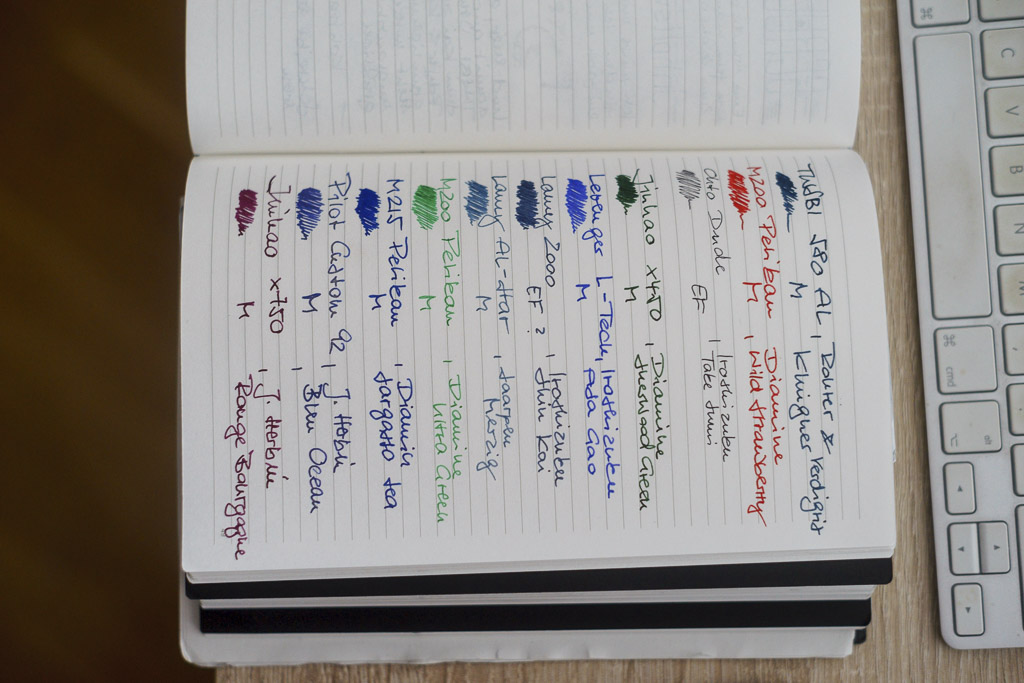 TWSBI 580 AL , Rohrer &
M Klingner Verdigris
M200 Pelikan Diamine
M , Wild Strawberry
Ohto Dude , Iroshizuku
EF Take Sumi
Jinhao x450 , Diamine
M Sherwood Green
Levenger L-Tech, Iroshizuku
M Asa Gao
Lamy 2000 , Iroshizuku
EF ? Shin Kai
Lamy AL-star ,
M Merzig
M200 Pelikan , Diamine
M Ultra Green
M215 Pelikan , Diamin
M Sargasso Sea
Pilot Custom 92 , J. Herbin
M , Bleu Ocean
Jinhao x750 , J. Herbin
M Rouge Bourgogne
C
V
B
N
cmd
alt